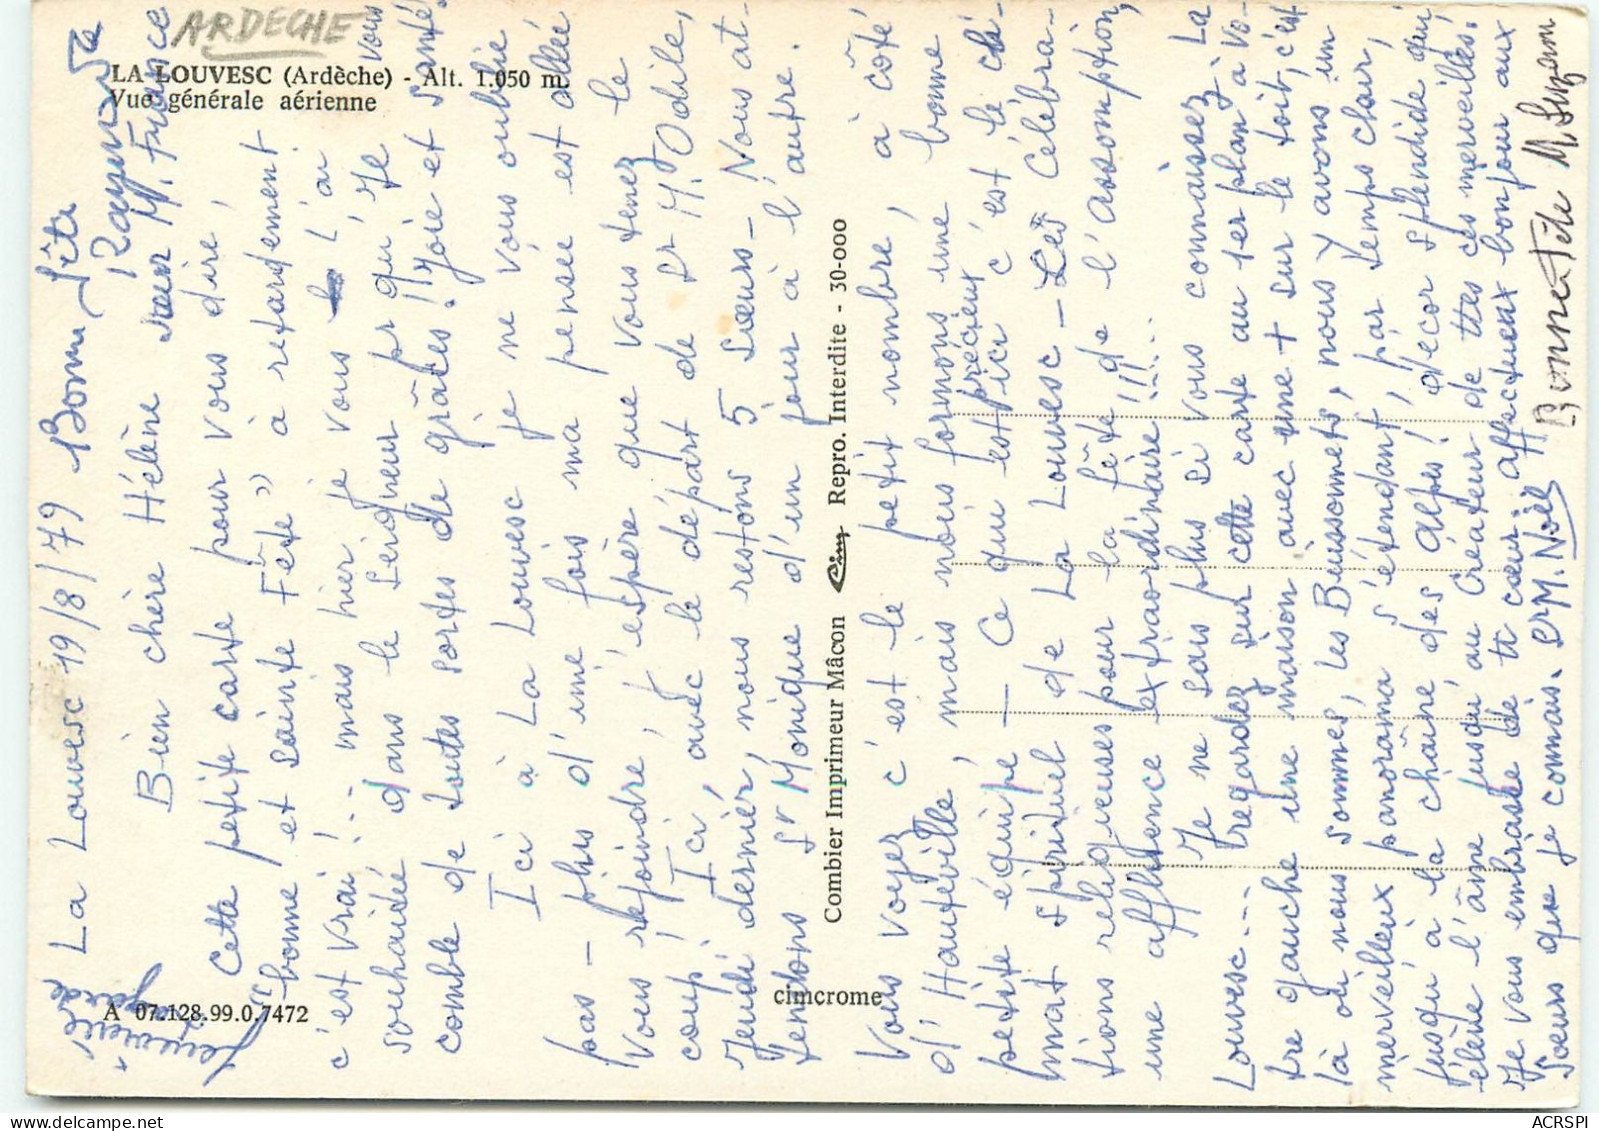 ARDECHE
LA LOUVESC (Ardèche) - Alt. 1.050 m.
Vue générale aérienne
La Louvesc 19/8/79 Bonne fête
Raymonde
Sœur M. France
Bien chère Hélène
Cette petite carte pour vous dire,
"bonne et sainte Fête" à retardement
c'est vrai !.. mais hier je vous l'ai
souhaitée dans le Seigneur pr qu'Il vous
comble de toutes sortes de grâces ! Joie et santé.
Ici à La Louvesc je ne vous oublie
pas - plus d'une fois ma pensée est allée
vous rejoindre, j'espère que vous tenez le
coup ! Ici, avec le départ de Sr M. Odile,
Jeudi dernier, nous restons 5 sœurs - Nous at-
tendons Sr Monique d'un jour à l'autre.
Combier Imprimeur Mâcon Cim Repro. Interdite - 30-000
cimcrome
A 07.128.99.0.7472
Vous voyez c'est le petit nombre, à côté
d'Hauteville, mais nous formons une bonne
petite équipe - Ce qui est précieux ici c'est le cli-
mat spirituel de La Louvesc - Les Célébra-
tions religieuses pour la fête de l'Assomption,
une affluence extraordinaire !!!...
Je ne sais plus si vous connaissez La
Louvesc... regardez sur cette carte au 1er plan à vo-
tre gauche une maison avec une + sur le toit, c'est
là où nous sommes, les Buissonnets, nous y avons un
merveilleux panorama s'étendant, par temps clair,
jusqu'à la chaîne des Alpes ! décor splendide qui
élène l'âme jusqu'au Créateur de ttes ces merveilles.
Je vous embrasse de tt cœur. affectueux bonjour aux
Sœurs que je connais. Sr M. Noël
Bonne Fête M Suzanne